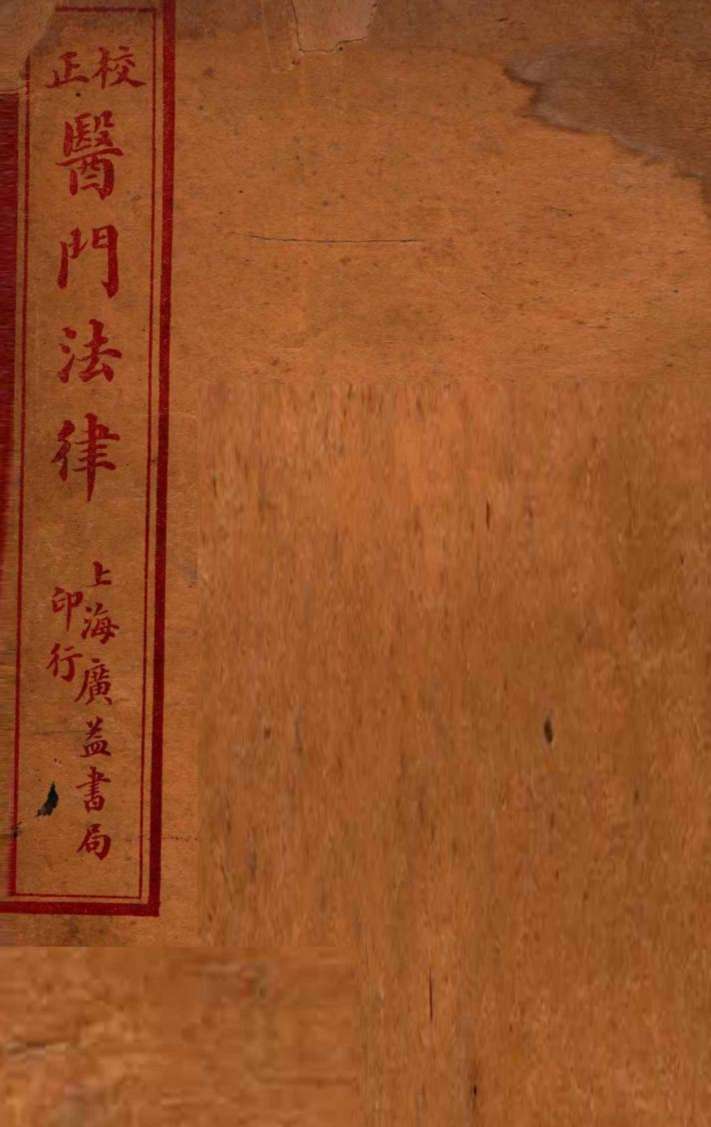 校正
醫門法律
上海廣益書局
印行